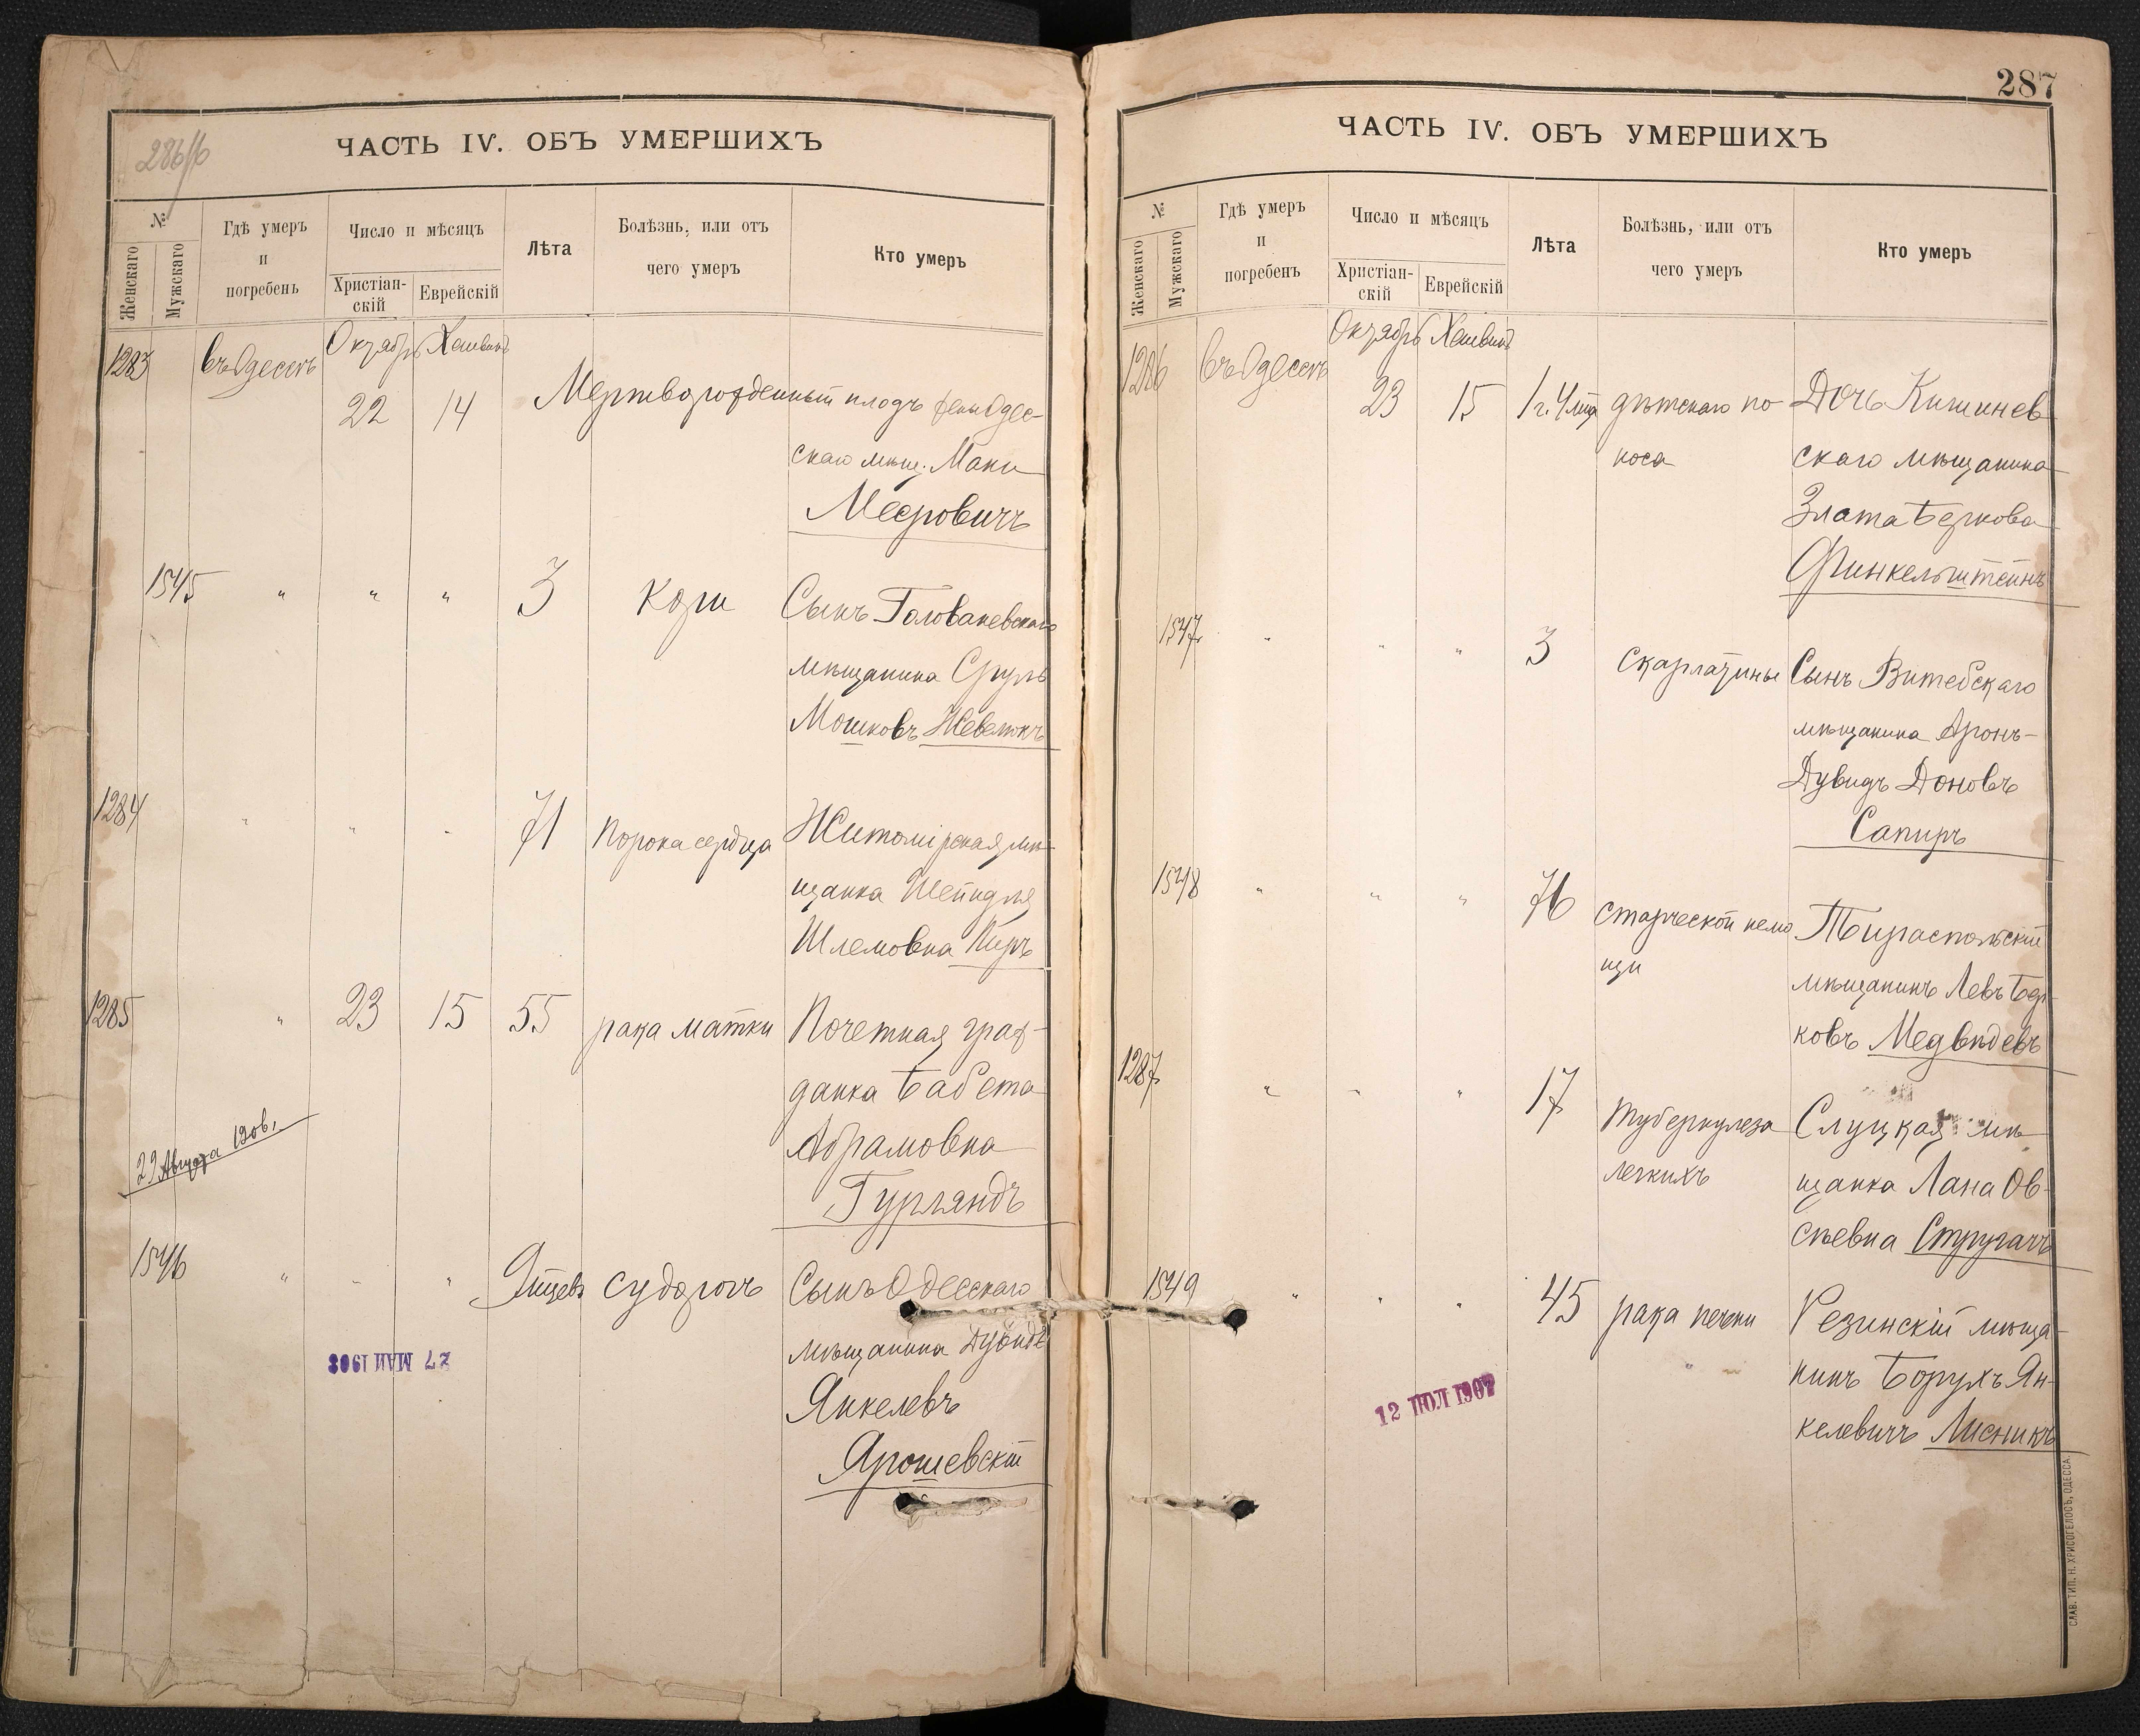 286/б
ЧАСТЬ IV. ОБЪ УМЕРШИХЪ
№
Женскаго
Мужскаго
Гдѣ умеръ
и
погребенъ
Число и мѣсяцъ
Христіан-
скій
Еврейскій
Лѣта
Болѣзнь, или отъ
чего умеръ
Кто умеръ
1283 въ Одессѣ Октябрь Хешвинъ
22 14 Мертворожденный плодъ Одес-
скаго мѣщ. Мани
Меєровичъ
1545 " " " 3 Кори Сынъ Голованевскаго
мѣщанина Сруль
Мошковъ Жевелюкъ
1284 " " " 71 Порока сердца Житомірская мѣ-
щанка Шейндля
Шлемовна Киръ
1285 " 23 15 55 рака матки Почетная граж-
данка Бабета
Абрамовна
Гурляндъ
29 Августа 1906.
1546 " " " 9 мцевъ судорогъ Сынъ Одесскаго
мѣщанина Дувидъ
Янкелевъ
Ярошевскій
27 МАЙ 1908
287
ЧАСТЬ IV. ОБЪ УМЕРШИХЪ
№
Женскаго
Мужскаго
Гдѣ умеръ
и
погребенъ
Число и мѣсяцъ
Христіан-
скій
Еврейскій
Лѣта
Болѣзнь, или отъ
чего умеръ
Кто умеръ
1286 въ Одессѣ Октябрь Хешвинъ
23 15 1 г. 4 мца дѣтскаго по- Дочь Кишинев
носа скаго мѣщанина
Злата Беркова
Финкельштейнъ
1547 " " " 3 скарлатины Сынъ Витебскаго
мѣщанина Аронъ-
Дувидъ Доновъ
Сапиръ
1548 " " " 76 старческой немо Тираспольскій
щи мѣщанинъ Левъ Бер-
ковъ Медвѣдевъ
1287 " " " 17 туберкулеза Слуцкая мѣ-
легкихъ щанка Лана Ов-
сѣевна Стругачъ
1549 " " " 45 рака печени Резинскій мѣща-
нинъ Борухъ Ян-
келевичъ Лисникъ
12 ІЮЛ 1907
СЛАВ. ТИП. Н. ХРИСОГЕЛОСЪ, ОДЕССА.